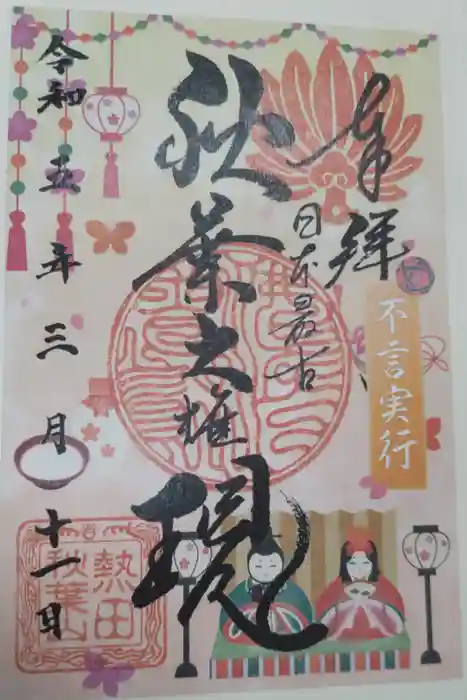 奉拝
日本最古
不言実行
秋葉大権現
令和五年三月十一日
熱田
秋葉山